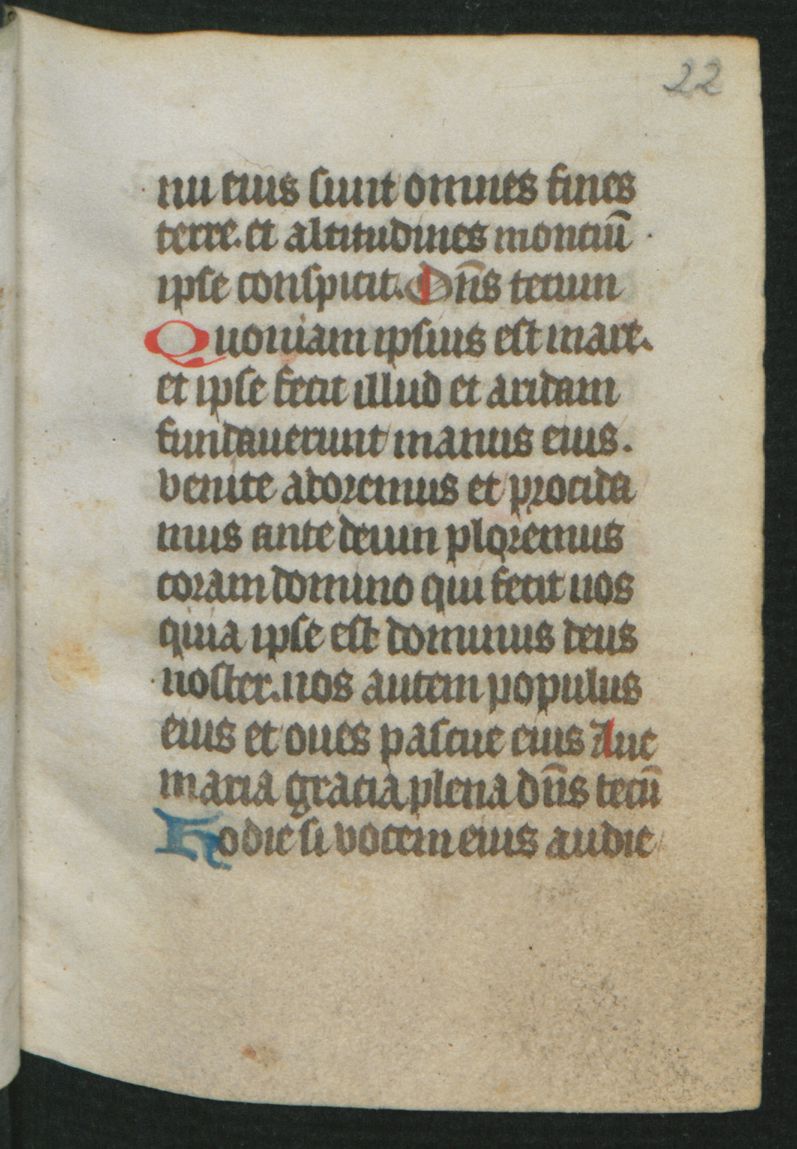 22
nu eius sunt omnes fines
terre. et altitudines montiū
ipse conspicit. Dn̄s tecum
Quoniam ipsius est mare.
et ipse fecit illud et aridam
fundauerunt manus eius.
venite adoremus et procida
mus ante deum ploremus
coram domino qui fecit nos
quia ipse est dominus deus
noster. nos autem populus
eius et oues pascue eius Aue
maria gracia plena dn̄s tecū
Hodie si vocem eius audie